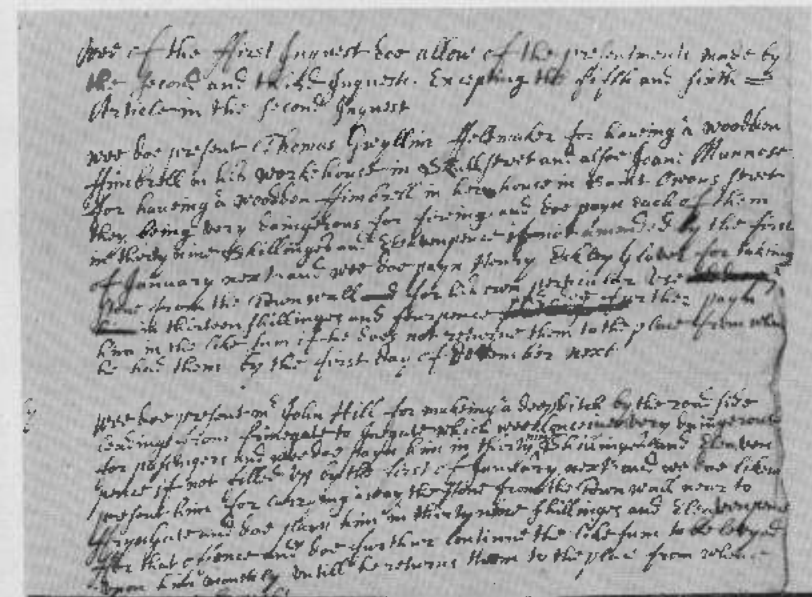 wee of the ffirst Inquest doe allow of the presentments made by
the second and third Inquests. Excepting the fifth and sixth =
Article in the second Inquest
wee doe present Thomas ffeltmaker for haueing a wooden
in his workehouse in street and alsoe Jeane
for haueing a wooden in her house in Saint Owens street
they being very daingerous for fireing and doe payn each of them
in thirty nine shillinges and Elevenpence if not ammended by the first
of January next and wee doe payn Henry Glover for taking
stone from the Townwall for his own perticular use
in thirteen shillinges and fourpence further payn
him in the like sum if he does not returne them to the place from when
he had them by the first day of next
wee doe present mr John Hill for makeing a deep ditch by the road side
leading from to which wee very daingerous
for passengers and wee doe payn him in thirty nine shillinges and Eleven
pence if not filled up by the first of January next and we doe likew
present him for carrying away the stone from the Town wall near to
and doe payn him in thirtynine shillinges and Elevenpence
for that ofence and doe further continue the like sum to be
upon him monthly untill he returns them to the place from whence